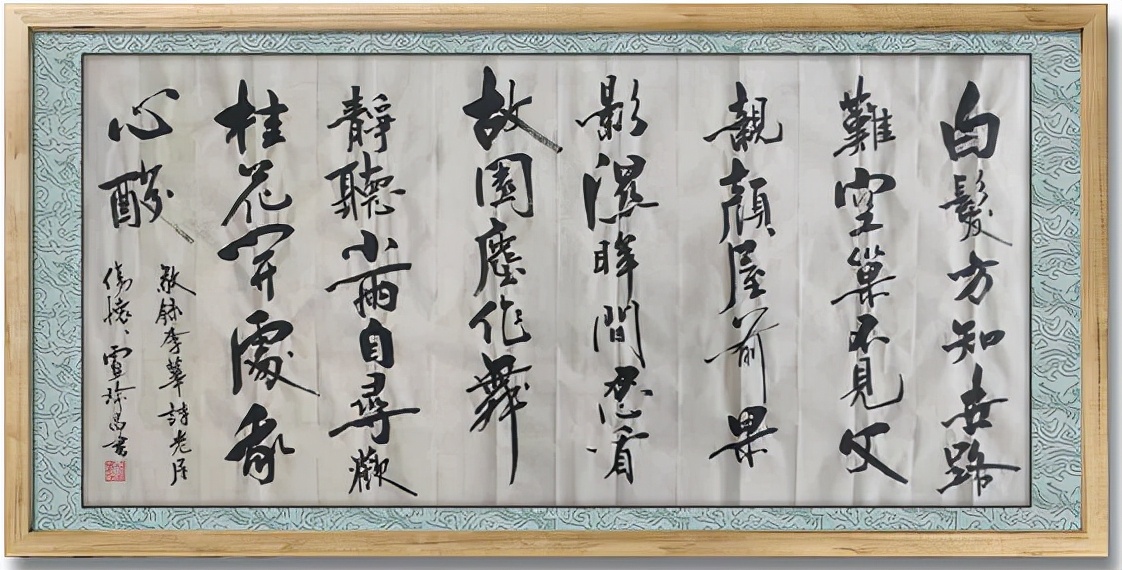 白髮方知世路
難空巢不見父
親顏屋前果
影濕眸間忍看
故園塵作舞
靜聽小雨自尋歡
桂花開處我
心酸
敬録李華詩老屋
傷懷書